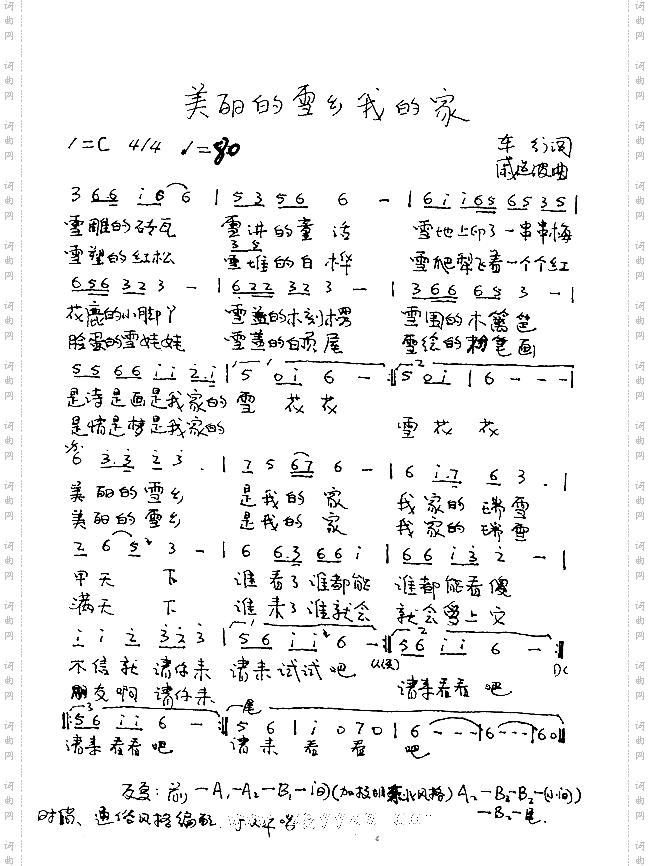 美丽的雪乡我的家
1=C 4/4 ♩=80
车行词
戚建波曲
3 6 6 i 6 6 | 5 3 5 6 6 - | 6 i i 6 5 6 5 3 5 |
雪雕的砖瓦 雪讲的童话 雪地上印了一串串梅
雪塑的红松 雪堆的白桦 雪爬犁飞着一个个红
6 5 6 3 2 3 - | 6 2 2 3 2 3 - | 3 6 6 6 5 3 - |
花鹿的小脚丫 雪盖的木刻楞 雪围的木篱笆
脸蛋的雪娃娃 雪盖的白 尾 雪绘的粉笔画
5 5 6 6 i i 2 . i | 5 0 i 6 - :|| 5 0 i | 6 - - - |
是诗是画是我家的雪 花 花
是情是梦是我家的 雪 花 花
6 3 . 3 2 3 . | 7 5 6 7 6 - | 6 i . 7 6 3 . |
美丽的雪乡 是我的家 我家的瑞雪
美丽的雪乡 是我的家 我家的瑞雪
2 6 5 3 - | 6 6 . 3 6 6 i | 6 6 i 3 2 - |
甲天下 谁看了谁都能 谁都能看傻
满天下 谁来了谁就会 就会爱上它
i i 2 3 2 3 | 5 6 i i 6 - :|| 5 6 i i 6 - :||
不信就请你来 请来试试吧
朋友啊请你来 请来看看吧
DC
||: 5 6 i i 6 - :|| 尾 5 6 | i i 0 7 0 | 6 - - - | 6 - - - | 6 0 ||
请来看看吧 请来看看吧
反复：前—A₁—A₂—B₁—间(加 风格) A₂—B₂—B₂—(小间)
—B₂—尾.
时尚、通俗风格编配.